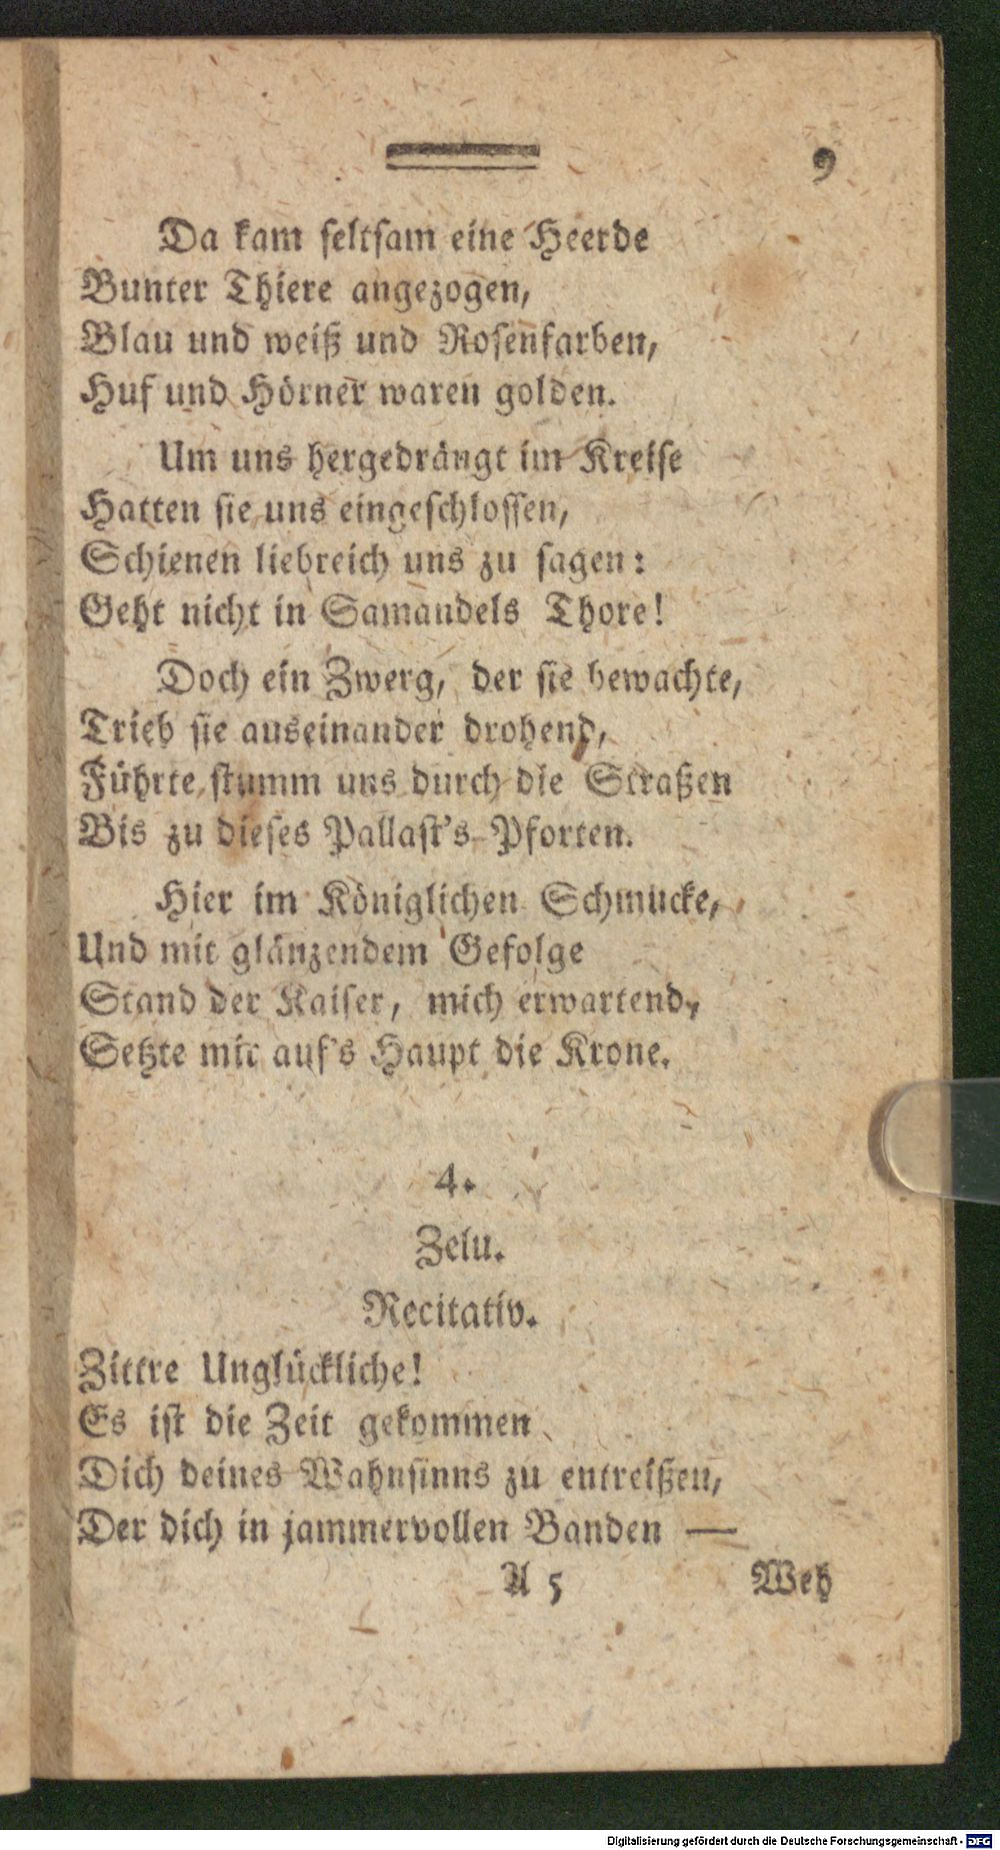 9
Da kam seltsam eine Heerde
Bunter Thiere angezogen,
Blau und weiß und Rosenfarben,
Huf und Hörner waren golden.
Um uns hergedrängt im Kreise
Hatten sie uns eingeschlossen,
Schienen liebreich uns zu sagen:
Geht nicht in Samandels Thore!
Doch ein Zwerg, der sie bewachte,
Trieb sie auseinander drohend,
Führte stumm uns durch die Straßen
Bis zu dieses Pallast's Pforten.
Hier im Königlichen Schmucke,
Und mit glänzendem Gefolge
Stand der Kaiser, mich erwartend,
Setzte mir auf's Haupt die Krone.
4.
Zelu.
Recitativ.
Zittre Unglückliche!
Es ist die Zeit gekommen
Dich deines Wahnsinns zu entreißen,
Der dich in jammervollen Banden —
A 5 Weh
Digitalisierung gefördert durch die Deutsche Forschungsgemeinschaft - DFG